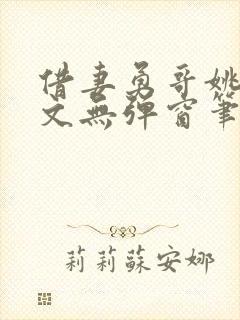 借妻勇哥姚
文無彈窗筆
莉莉蘇安娜